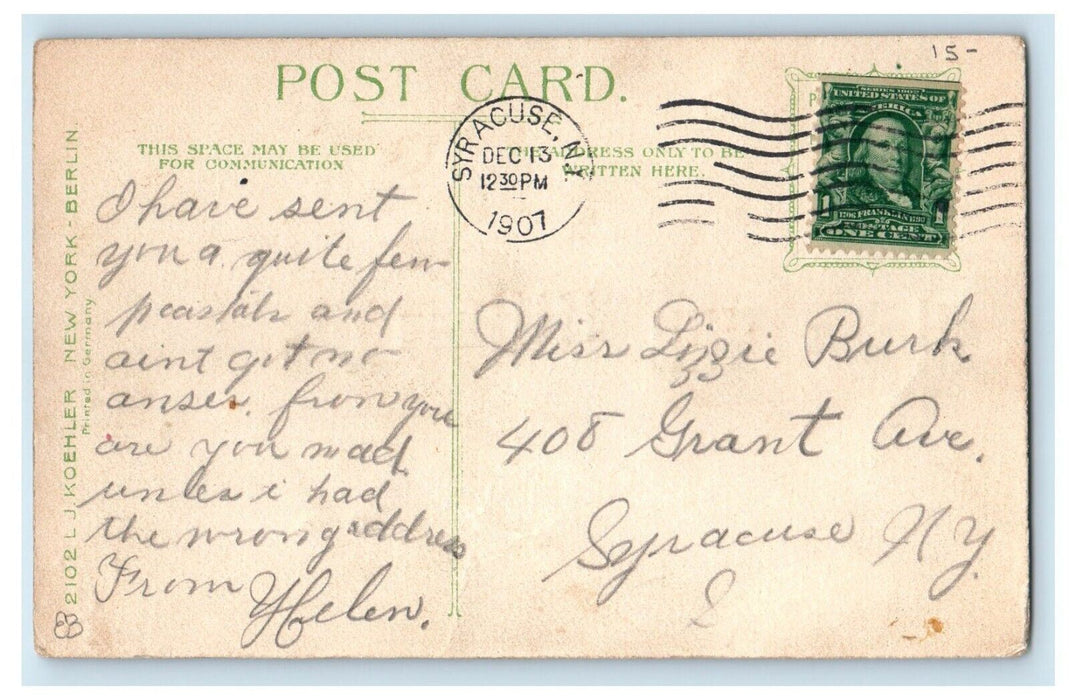 15-
POST CARD.
THIS SPACE MAY BE USED
FOR COMMUNICATION
THE ADDRESS ONLY TO BE
WRITTEN HERE.
SYRACUSE, N.Y.
DEC 13
12 30 PM
1907
SERIES 1902
UNITED STATES OF
AMERICA
1 1
1706 FRANKLIN 1790
POSTAGE
ONE CENT
2102 L. J. KOEHLER NEW YORK - BERLIN
Printed in Germany
I have sent
you a quite few
peastals and
aint got no
anser. from you
are you mad
unles i had
the wrong address
From Helen.
Miss Lizzie Burk
408 Grant Ave.
Syracuse N.Y.